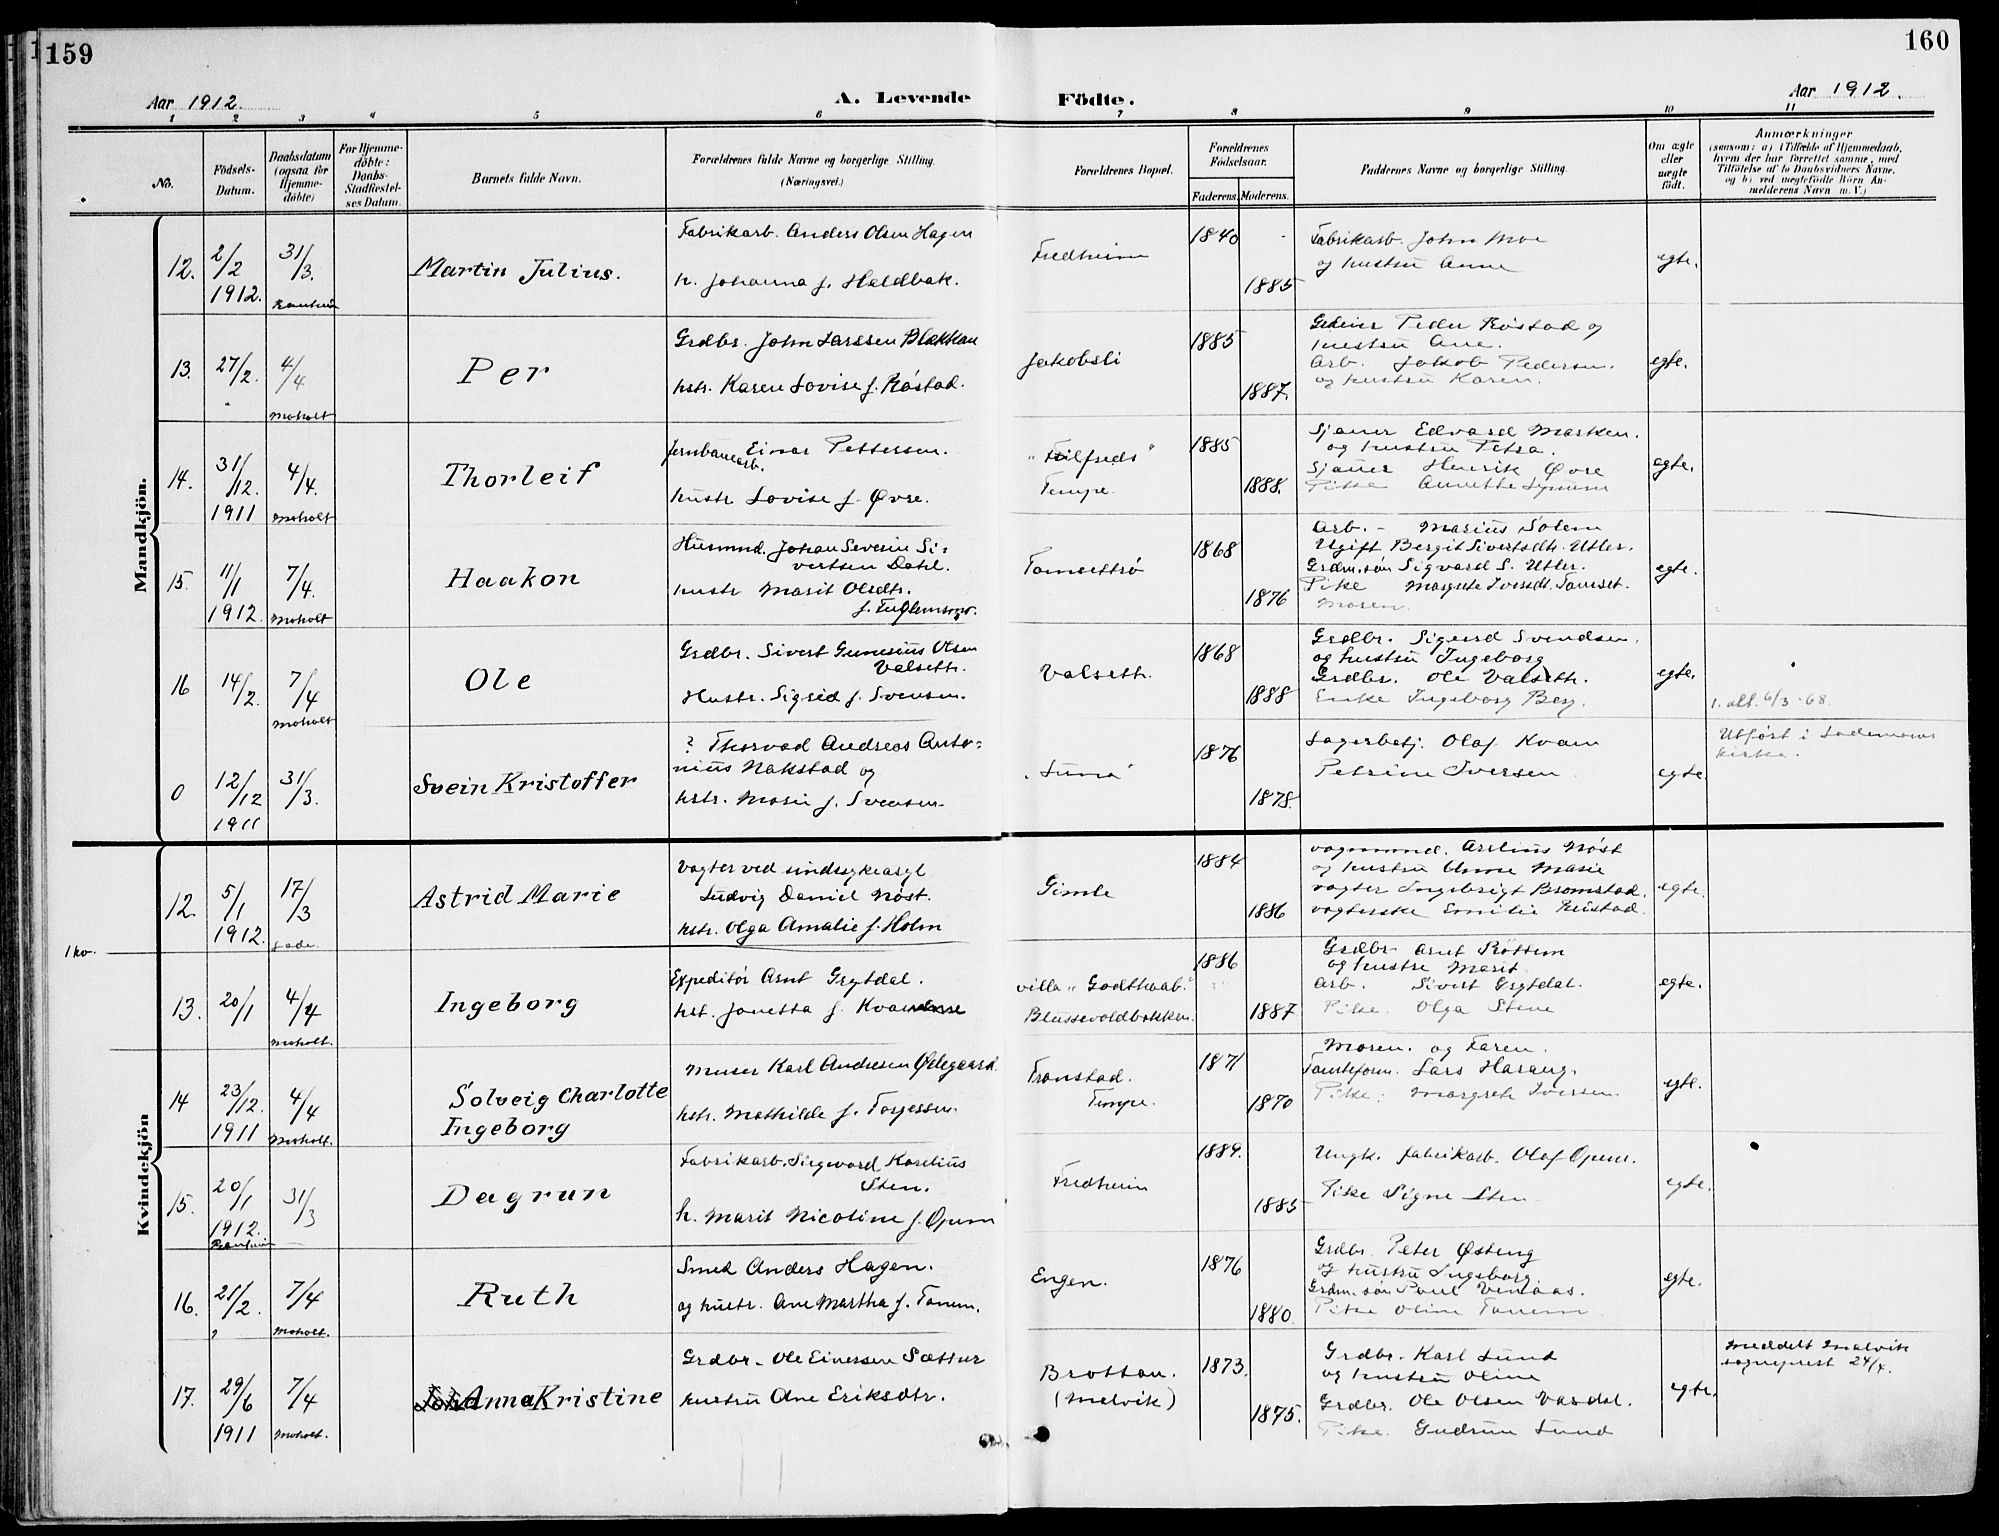 159
160
Aar 1912.
A. Levende
Födte.
Aar 1912.
1 2 3 4 5 6 7 8 9 10 11
No.
Födsels-Datum.
Daabsdatum (ogsaa for Hjemmedöbte)
For Hjemmedöbte: Daabs-Stadfæstelses Datum.
Barnets fulde Navn.
Forældrenes fulde Navne og borgerlige Stilling. (Næringsvei.)
Forældrenes Bopæl.
Forældrenes Födselsaar.
Faderens. Moderens.
Faddernes Navne og borgerlige Stilling.
Om ægte eller uægte födt.
Anmærkninger
(saasom: a) i Tilfælde af Hjemmedaab, hvem der har forrettet samme, med Tilföielse af to Daabsvidners Navne. og b) ved uægtefödte Börn Anmelderens Navn m. V.)
Mandkjön.
12. 2/2 1912. 31/3.
Martin Julius.
Fabrikarb. Anders Olsen Hagen
h. Johanna f. Haldbak.
Fredheim
1840 1885
Fabrikarb. John Moe
og hustru Anne
egte.
13. 27/2. 4/4 Moholt
Per
Grdbr. John Larssen Blakkan
hstr. Karen Lovise f. Röstad.
Jakobsli
1885 1887.
Peder Röstad og
hustru Ane.
Arb. Jakob Pedersen.
og hustru Karen.
egte.
14. 31/12. 1911 4/4. Moholt
Thorleif
Jernbanearb. Einar Pettersen.
hustr Lovise f. Øvre.
Tempe.
1885 1888.
Sjauer Edvard Marken.
og hustru Petra.
Sjauer Henrik Øvre
Pike Annette
egte.
15. 11/1 1912. 7/4. Moholt
Haakon
Husmnd. Johan Severin Si-
vertsen Dahl.
hustr Marit Olsdtr.
Tomsettrö
1868 1876
Arb. - Marius Solem
Ugift Bergit Sivertsdtr. Utler.
Grdm. sön Sigvard S. Utler.
Pike Margrete Iversdt. Tomset.
Moren.
egte.
16 14/2. 7/4 Moholt
Ole
Grdbr. Sivert Gunerius Olsen
Valseth.
Hustr. Sigrid f. Svensen.
Valseth.
1868 1888
Grdbr. Sigurd Svendsen.
og hustru Ingeborg
Grdbr. Ole Valseth.
Enke Ingeborg Berg.
egte.
1. att. 6/3-68.
0 12/12 1911 31/3.
Svein Kristoffer
? Thorvad Andreas Anto-
nius Nakstad og
hstr. Marie f. Svensen
1876 1878.
Lagerbetj. Olaf Kvam
Petrine Iversen
egte.
Utført i Lademoens
kirke.
Kvindekjön
12. 5/1 1912. 17/3 Lade.
Astrid Marie
Vagter ved sindssykeasyl
Ludvig Daniel Nöst.
hstr. Olga Amalie f. Holm
Gimle
1884 1886
vognmnd. Nöst
og hustru Anne Marie
vagter Ingebrigt Bromstad.
vagterske Emilie
egte.
1 ko.
13. 20/1 4/4 Moholt.
Ingeborg
Expeditör Arnt Grytdal.
hst. Jonetta f.
villa "Godthaab."
Blussevoldbakken.
1886 1887
Grdbr Arnt Röttum
og hustru Marit.
Arb. Sivert Grytdal.
Pike. Olga Stene
egte.
14 23/12. 1911 4/4 Moholt.
Solveig Charlotte
Ingeborg
Murer Karl Andresen Ødegaard.
hstr. Mathilde f. Torgessen.
Tronstad.
Tempe.
1871 1870
Moren. og Faren.
Tomteform. Lars Harang.
Pike: Margrete Iversen.
egte.
15. 20/1 1912. 31/3
Dagrun
Fabrikarb. Siegvard Karelius
Sten.
h. Marit Nicoline f. Opem
Fredheim
1889. 1885
Ungk. fabrikarb. Olaf Opem.
Pike Signe Sten
egte.
16. 21/2. 7/4 Moholt.
Ruth
Smed Anders Hagen.
og hustr. Ane Martha f. Tanem.
Engen.
1876 1880.
Grdbr. Peter Østeng
og hustru Ingeborg.
Grdm. sön Paul
Pike Oline Tanem
egte.
17. 29/6 1911 7/4 Moholt.
Anna Kristine
Grdbr. Ole Einersen Sættur
hustru Ane Eriksdtr.
Brottan.
(Malvik)
1873. 1875.
Grdbr. Karl Lund
og hustru Oline
Grdbr. Ole Olsen Vardal.
Pike. Gudrun Lund
egte.
Meddelt Malvik
sogneprest 24/4.